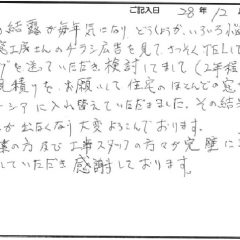 ご記入日 28年 12
の結露が毎年気になり、どうしようか、いろいろ悩
窓工房さんのチラシ広告を見て、さっそくTELして
グを送っていただき検討してまして(2年程
見積りをお願いして住宅のほとんどの窓
ーシアに入れ替えていただきました。その結
が出なくなり大変よろこんでおります。
業の方及び工事スタッフの方々が完璧に
していただき感謝しております。